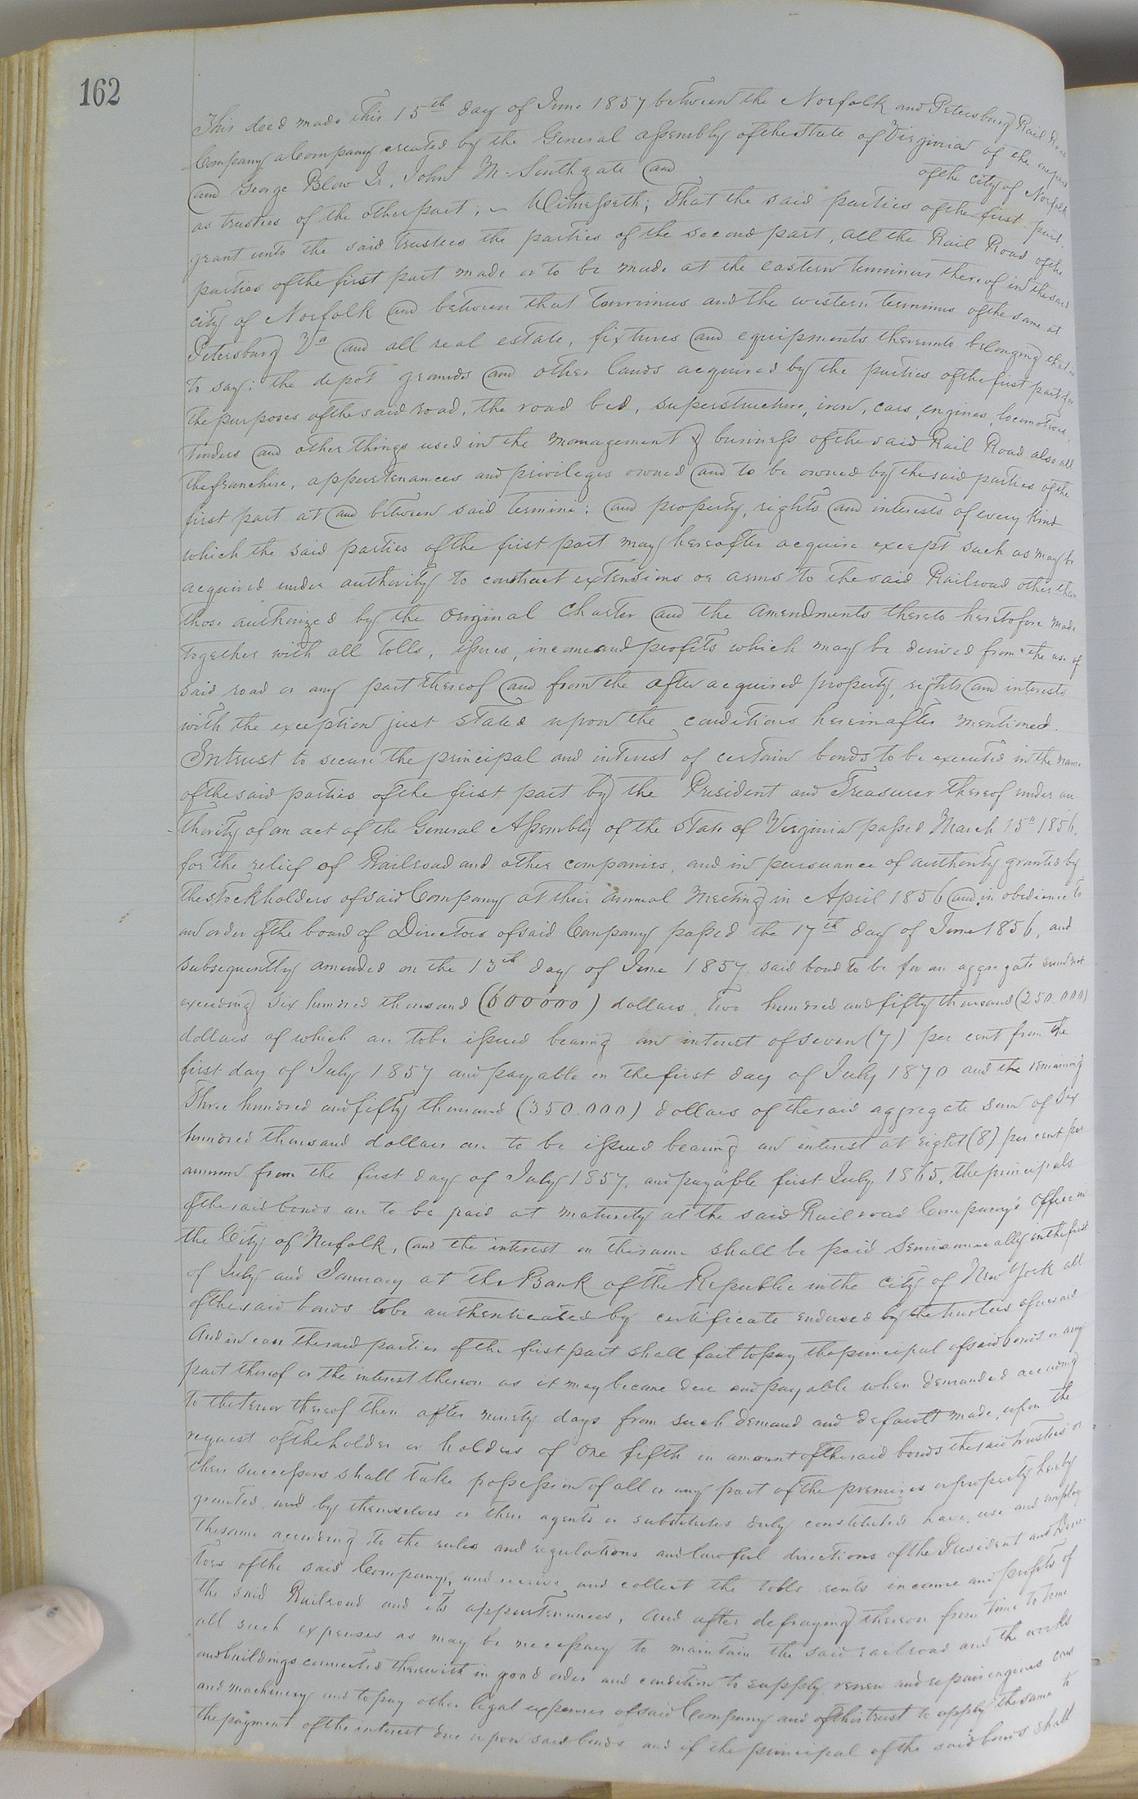 162
This deed made this 15th day of June 1857 between the Norfolk and Petersburg Rail Road
Company a Company created by the General assembly of the State of Virginia of the
and George Blow Jr. John M. Southgate and of the city of Norfolk
as trustees of the other part; ~ Witnesseth; That the said parties of the first part
grant unto the said trustees the parties of the second part, all the Rail Road of the
parties of the first part made or to be made at the eastern terminus thereof in the said
city of Norfolk and between that terminus and the western terminus of the same at
Petersburg Va and all real estate, fixtures and equipments thereunto belonging that is
to say: the depot grounds and other lands acquired by the parties of the first part for
the purposes of the said road, the road bed, superstructure, iron, cars, engines, locomotives,
tenders and other things used in the management & business of the said Rail Road also all
the franchise, appurtenances and privileges owned and to be owned by the said parties of the
first part at and between said termini: and property, rights and interests of every kind
which the said parties of the first part may hereafter acquire except such as may be
acquired under authority to construct extensions or arms to the said Railroad other than
those authorized by the original charter and the amendments thereto heretofore made
together with all tolls, issues, income and profits which may be derived from the use of
said road or any part thereof and from the after acquired property, rights and interests
with the exception just stated upon the conditions hereinafter mentioned.
In trust to secure the principal and interest of certain bonds to be executed in the name
of the said parties of the first part by the President and Treasurer thereof under au
thority of an act of the General Assembly of the State of Virginia passed March 15th 1856,
for the relief of Railroad and other companies, and in pursuance of authority granted by
the stockholders of said Company at their annual meeting in April 1856 and in obedience to
an order of the board of Directors of said Company passed the 17th day of June 1856, and
subsequently amended on the 13th day of June 1857. said bond to be for an aggregate sum not
exceeding six hundred thousand (600000) dollars, two hundred and fifty thousand (250.000)
dollars of which are to be issued bearing an interest of seven (7) per cent from the
first day of July 1857 and payable on the first day of July 1870 and the remaining
Three hundred and fifty thousand (350.000) dollars of the said aggregate sum of Six
hundred thousand dollars are to be issued bearing an interest at eight (8) per cent per
annum from the first day of July 1857. and payable first July 1865, the principals
of the said bonds are to be paid at maturity at the said Railroad Company's office in
the City of Norfolk, and the interest on the same shall be paid semiannually on the first
of July and January at the Bank of the Republic in the city of New York all
of the said bonds to be authenticated by certificate endorsed by the trustees aforesaid
And in case the said parties of the first part shall fail to pay the principal of said bonds or any
part thereof or the interest thereon as it may became due and payable when demanded according
to the tenor thereof then after ninety days from such demand and default made, upon the
request of the holder or holders of one fifth in amount of the said bonds the said trustees or
their successors shall take possession of all or any part of the premises or property hereby
granted and by themselves or their agents or substitutes duly constituted have, use and employ
the same according to the rules and regulations and lawful directions of the President and Direc
tors of the said Company, and receive and collect the tolls rents income and profits of
the said Railroad and its appurtenances, and after defraying thereon from time to time
all such expenses as may be necessary to maintain the said railroad and the works
and buildings connected therewith in good order and condition to supply, renew and repair engines cars
and machinery and to pay other legal expenses of said Company and of this trust to apply the same to
the payment of the interest due upon said bonds and if the principal of the said bonds shall